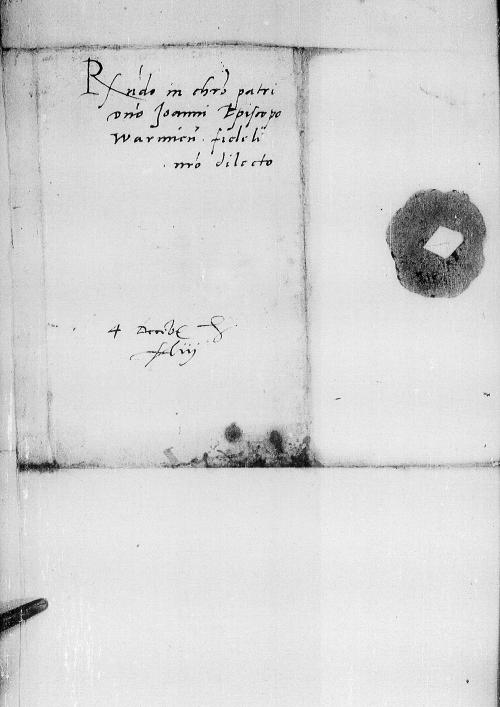 Rndo in chro patri
dno Ioanni Episcopo
Warmien. fideli
nro dilecto
4 Decēb